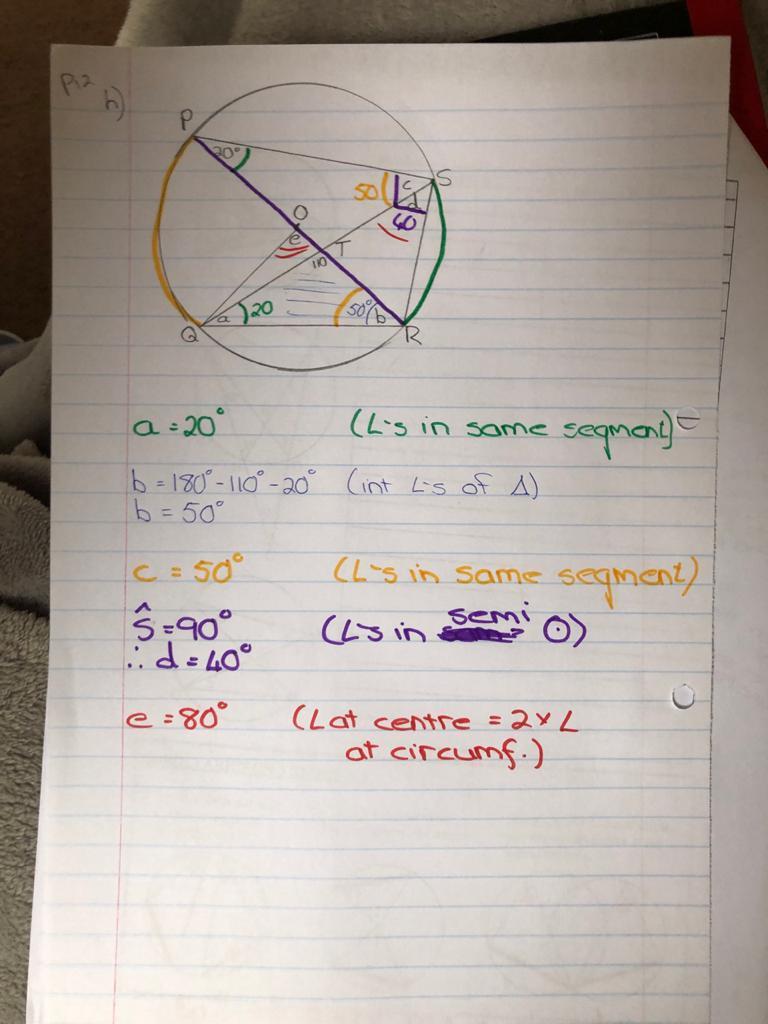 p12
h)
P
20°
S
50
c
d
40
O
e
T
110
a
20
50°
b
Q
R
a = 20° (∠'s in same segment)
b = 180° - 110° - 20° (int ∠'s of Δ)
b = 50°
c = 50° (∠'s in same segment)
Ŝ = 90° (∠'s in semi ⊙)
∴ d = 40°
e = 80° (∠ at centre = 2 x ∠
at circumf.)